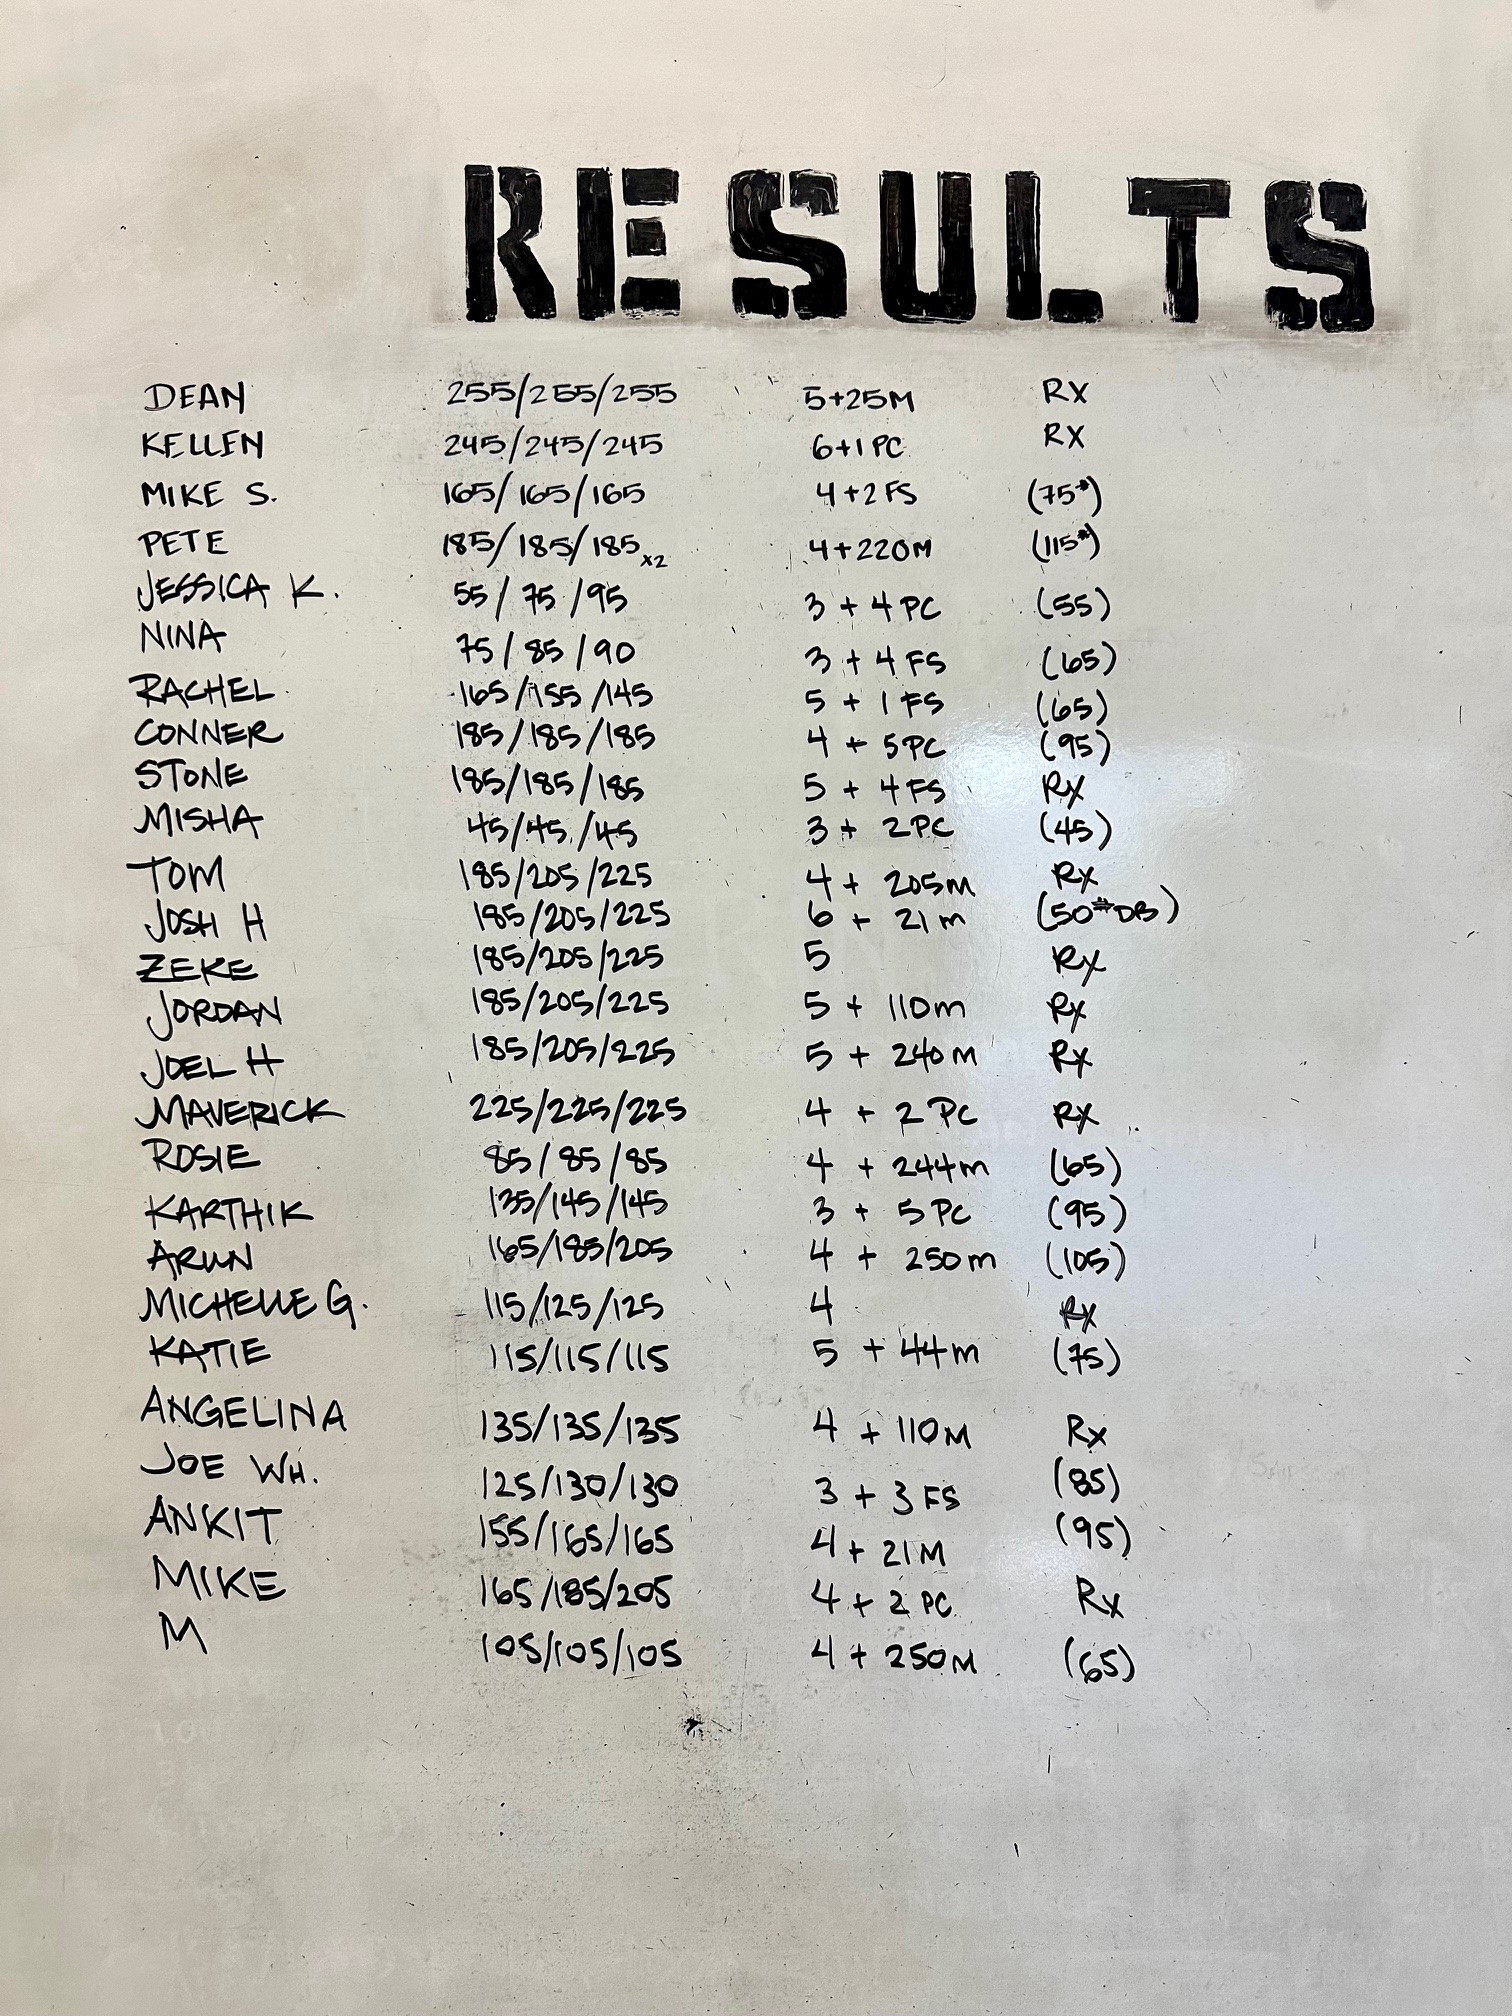 RESULTS
DEAN 255/255/255 5+25M RX
KELLEN 245/245/245 6+1PC RX
MIKE S. 165/165/165 4+2FS (75#)
PETE 185/185/185 x2 4+220M (115#)
JESSICA K. 55/75/95 3+4PC (55)
NINA 75/85/90 3+4FS (65)
RACHEL 165/155/145 5+1FS (65)
CONNER 185/185/185 4+5PC (95)
STONE 185/185/185 5+4FS Rx
MISHA 45/45/45 3+2PC (45)
TOM 185/205/225 4+205m Rx
JOSH H 185/205/225 6+21m (50#DB)
ZEKE 185/205/225 5 Rx
JORDAN 185/205/225 5+110m Rx
JOEL H 185/205/225 5+240m Rx
MAVERICK 225/225/225 4+2PC RX
ROSIE 85/85/85 4+244m (65)
KARTHIK 135/145/145 3+5PC (95)
ARUN 165/185/205 4+250m (105)
MICHELLE G. 115/125/125 4 Rx
KATIE 115/115/115 5+44m (75)
ANGELINA 135/135/135 4+110M Rx
JOE WH. 125/130/130 3+3FS (85)
ANKIT 155/165/165 4+21M (95)
MIKE 165/185/205 4+2PC Rx
M 105/105/105 4+250M (65)